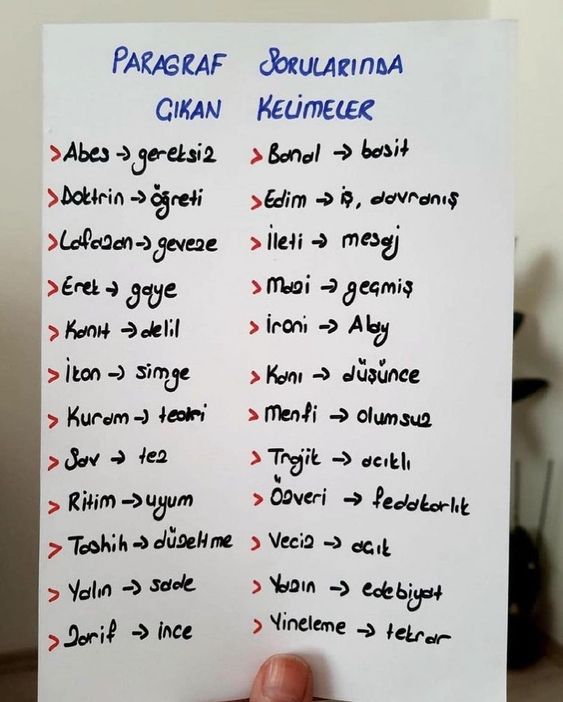 PARAGRAF SORULARINDA
ÇIKAN KELİMELER
> Abes → gereksiz
> Doktrin → öğreti
> Lafazan → geveze
> Erek → gaye
> Kanıt → delil
> İkon → simge
> Kuram → teori
> Sav → tez
> Ritim → uyum
> Tashih → düzeltme
> Yalın → sade
> Zarif → ince
> Banal → basit
> Edim → iş, davranış
> İleti → mesaj
> Mazi → geçmiş
> İroni → Alay
> Kanı → düşünce
> Menfi → olumsuz
> Trajik → acıklı
> Özveri → fedakarlık
> Veciz → açık
> Yazın → edebiyat
> Yineleme → tekrar